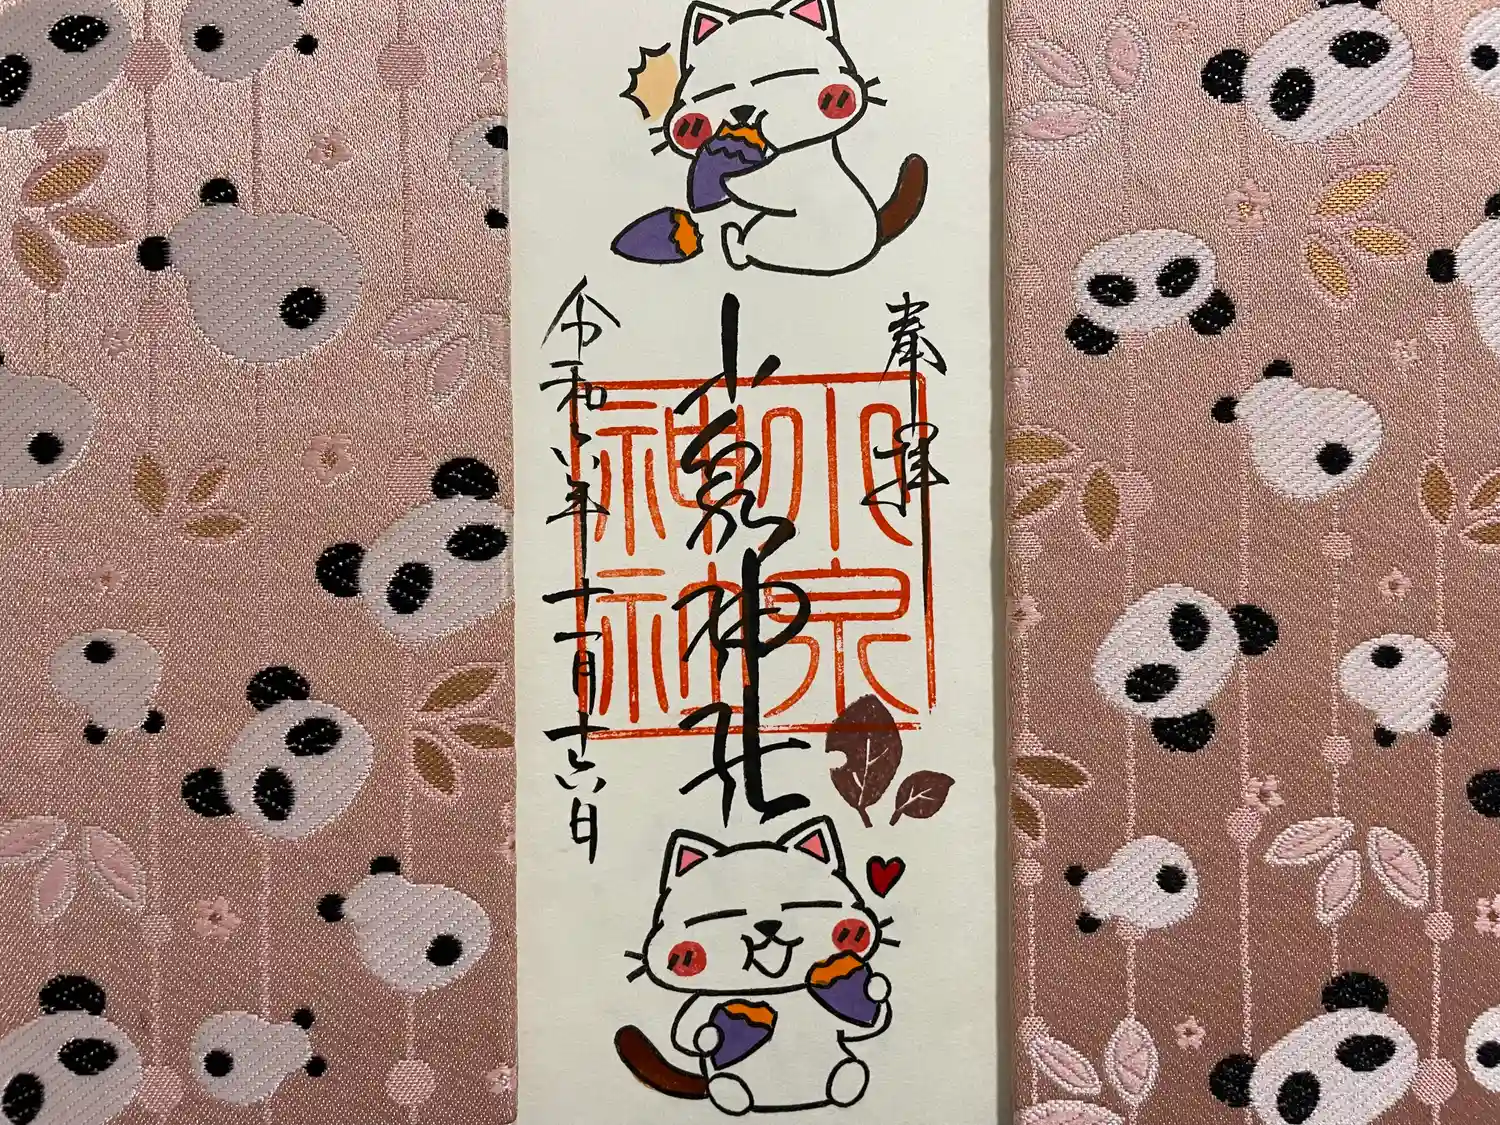 奉拝
小泉神社
小泉
神社
令和六年十一月十六日